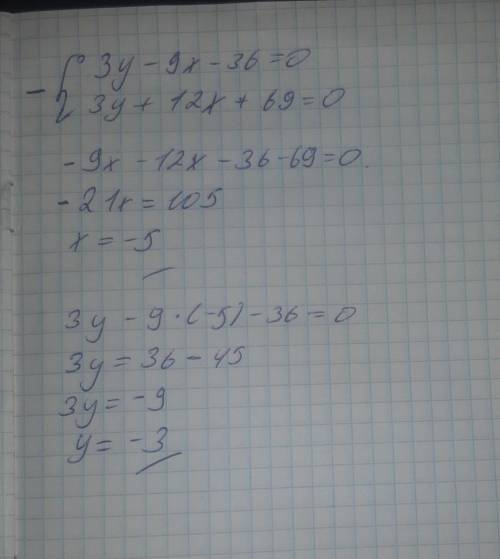 - { 3y - 9x - 36 = 0
3y + 12x + 69 = 0
- 9x - 12x - 36 - 69 = 0.
- 21x = 105
x = -5
3y - 9 · (-5) - 36 = 0
3y = 36 - 45
3y = -9
y = -3